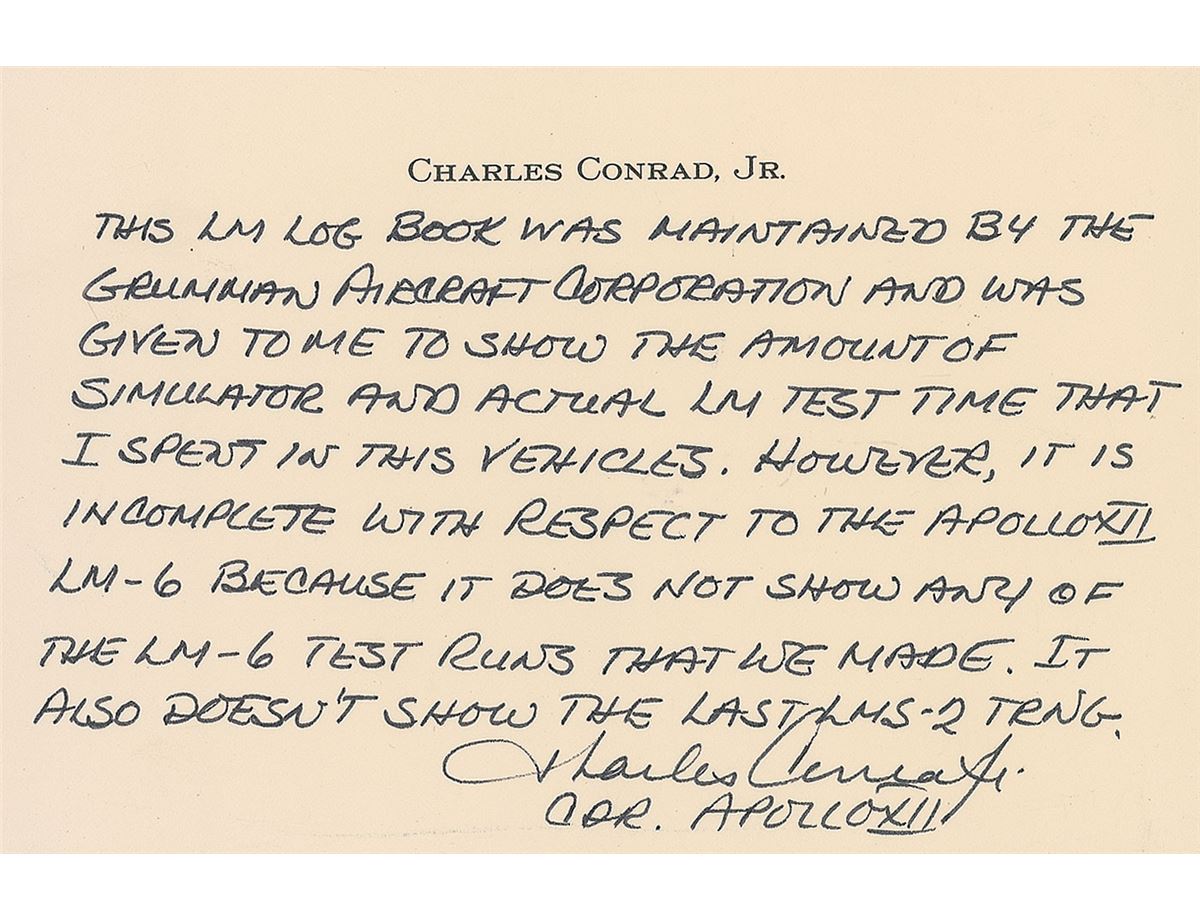 CHARLES CONRAD, JR.
THIS LM LOG BOOK WAS MAINTAINED BY THE
GRUMMAN AIRCRAFT CORPORATION AND WAS
GIVEN TO ME TO SHOW THE AMOUNT OF
SIMULATOR AND ACTUAL LM TEST TIME THAT
I SPENT IN THIS VEHICLES. HOWEVER, IT IS
INCOMPLETE WITH RESPECT TO THE APOLLO XII
LM-6 BECAUSE IT DOES NOT SHOW ANY OF
THE LM-6 TEST RUNS THAT WE MADE. IT
ALSO DOESN'T SHOW THE LAST LMS-2 TRNG.
Charles Conrad Jr.
CDR. APOLLO XII